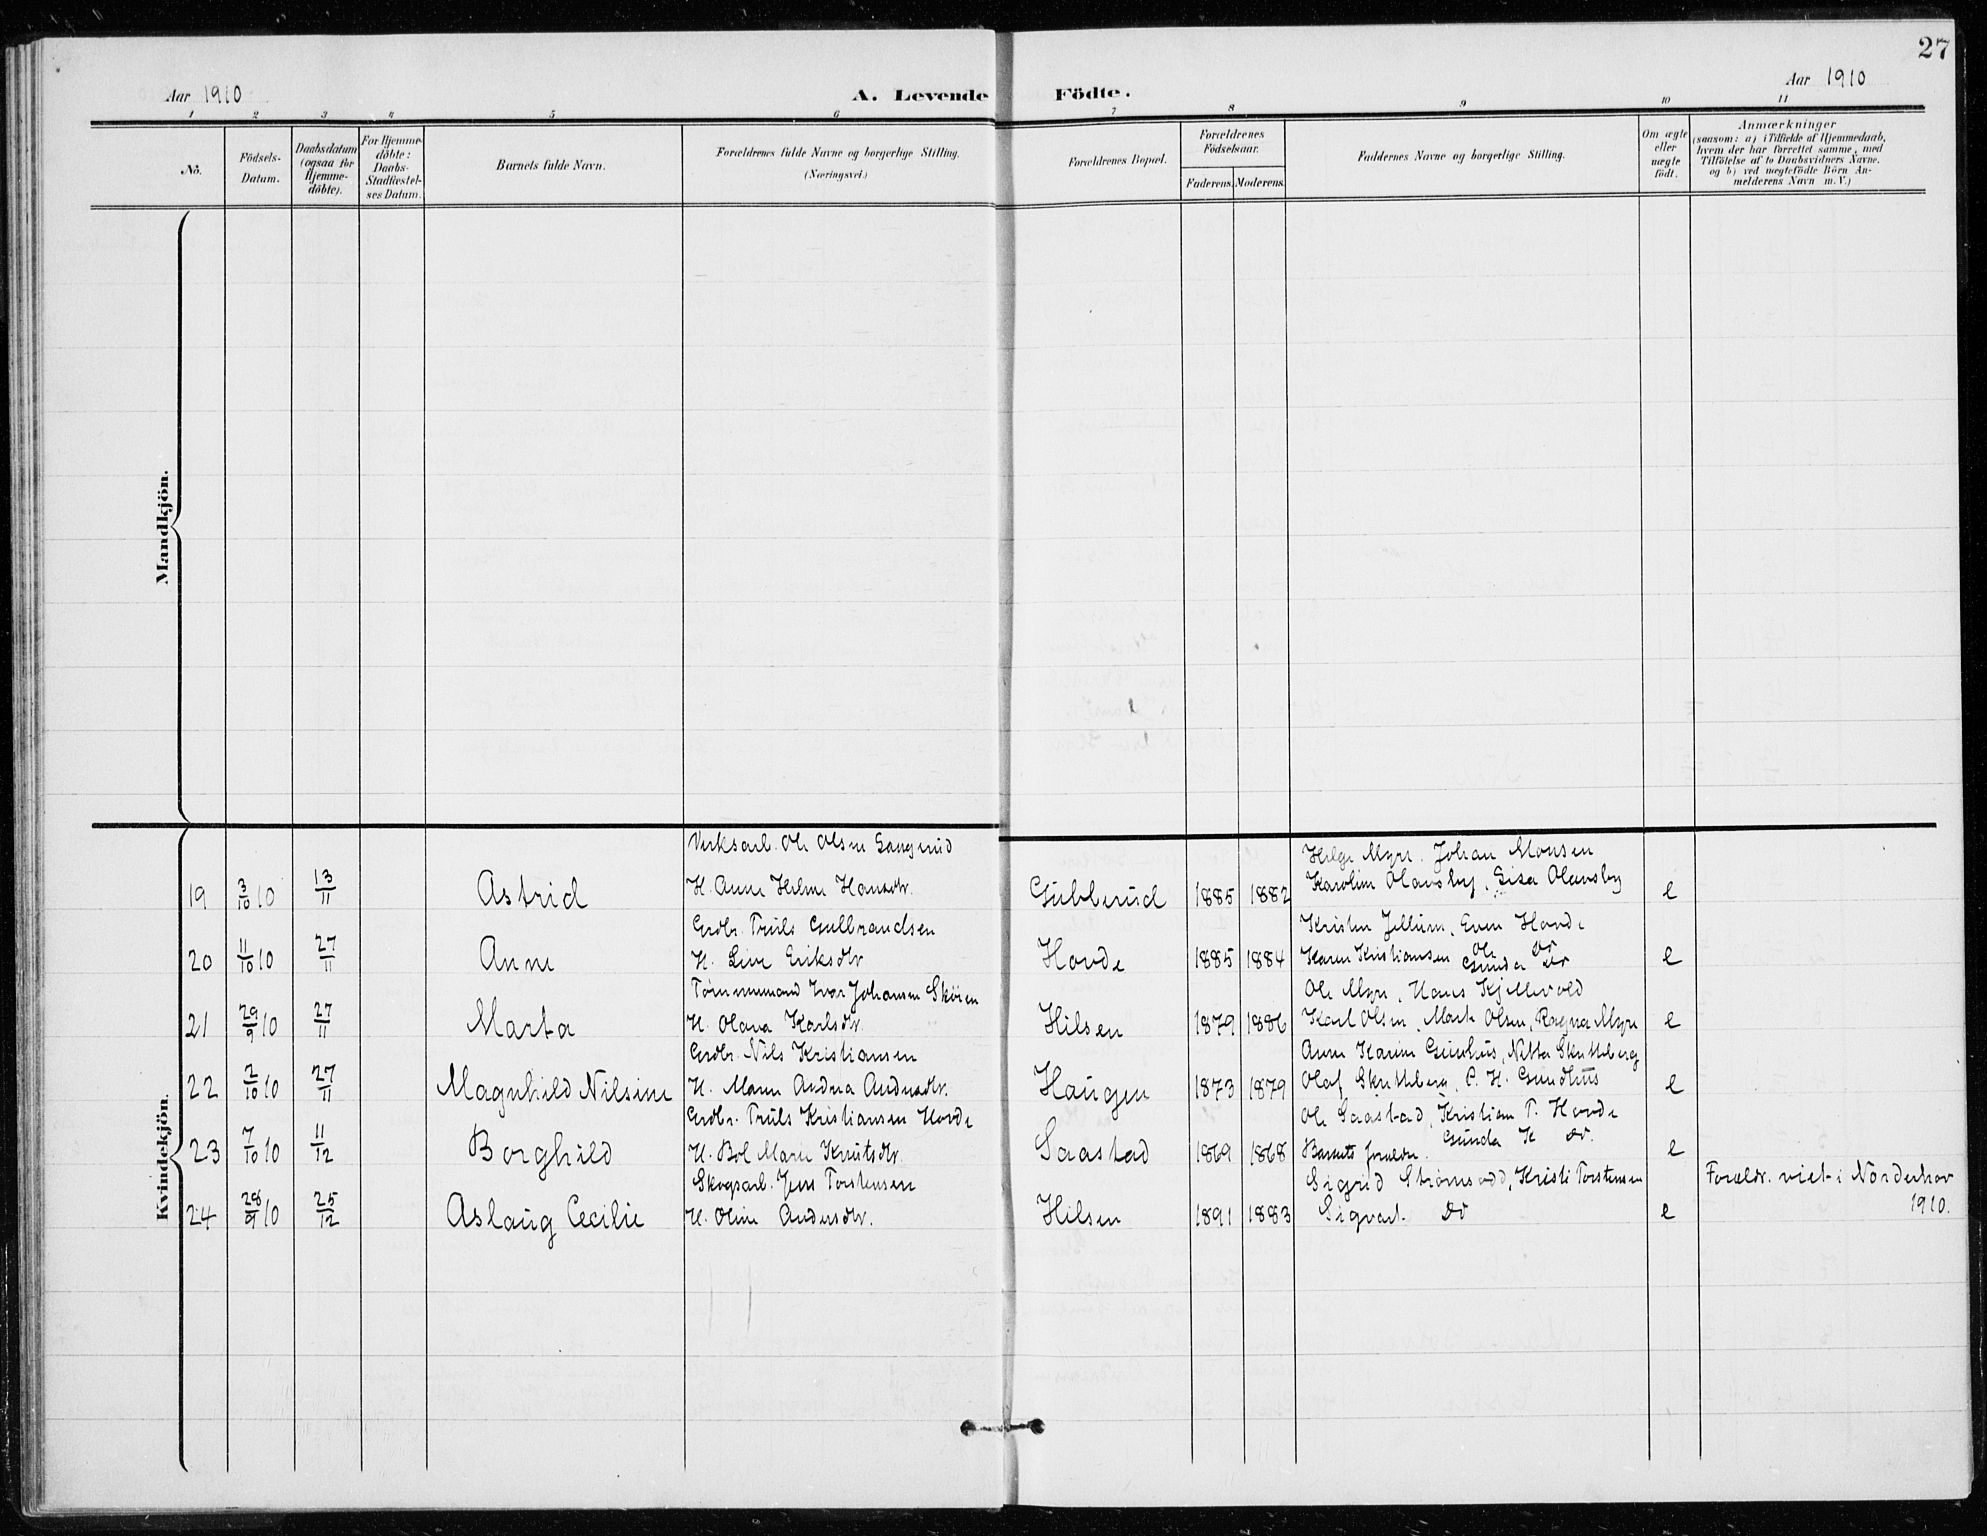 27
Aar 1910 A. Levende Födte. Aar 1910
1 2 3 4 5 6 7 8 9 10 11
No.
Födsels-
Datum.
Daabsdatum
(ogsaa for
Hjemme-
döbte).
For Hjemme-
döbte:
Daabs-
Stadfæstel-
ses Datum.
Barnets fulde Navn.
Forældrenes fulde Navne og borgerlige Stilling.
(Næringsvei.)
Forældrenes Bopæl.
Forældrenes
Födselsaar.
Faderens. Moderens.
Faddernes Navne og borgerlige Stilling.
Om ægte
eller
uægte
födt.
Anmærkninger
(saasom: a) i Tilfælde af Hjemmedaab,
hvem der har forrettet samme, med
Tilföielse af to Daabsvidners Navne.
og b) ved uægtefödte Börn An-
melderens Navn m. V.)
Mandkjön.
Kvindekjön.
Verksarb. Ole Olsen Gangerud Helge Myre. Johan Monsen
19 3/10 10 13/11 Astrid H. Anne Helene Hansdtr. Gubberud 1885 1882 Karoline Olavsby, Lisa Olavsby e
Grdbr. Truls Gulbrandsen Kristen Jellum, Even Hovde
20 11/10 10 27/11 Anne H. Live Eriksdtr Hovde 1885 1884 Karen Kristiansen Ole Do Gunda Do e
Tømmermand Ivar Johansen Skøien Ole Myre, Hans Kjellevold
21 29/9 10 27/11 Marta H. Olava Karlsdtr. Hilsen 1879 1886 Karl Olsen, Marte Olsen, Ragna Myre e
Grdbr. Nils Kristiansen Anne Karine Gunhus, Netta Skutteberg
22 2/10 10 27/11 Magnhild Nilsine H. Maren Andrea Andersdtr. Haugen 1873 1879 Olaf Skuttberg, P. H. Gundhus e
Grdbr. Truls Kristiansen Hovde Ole Saastad, Kristian T. Hovde
23 7/10 10 11/12 Borghild H. Bol Marie Knutsdtr. Saastad 1869 1868 Barnets forældre. Gunda K Do. e
Skogsarb. Jens Torstensen Sigrid Strømsodd, Kristi Torstensen Forældr. viet i Norderhov
24 28/9 10 25/12 Aslaug Cecilie H. Oline Andersdtr. Hilsen 1891 1883 Sigvart Do e 1910.